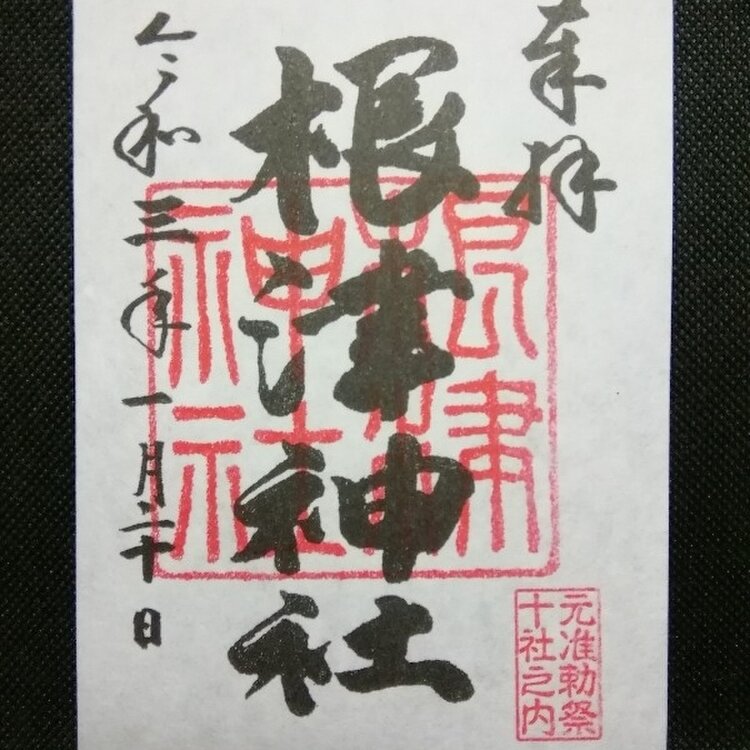 奉拝
根津神社
根津
神社
令和三年一月二十日
元准勅祭
十社之内